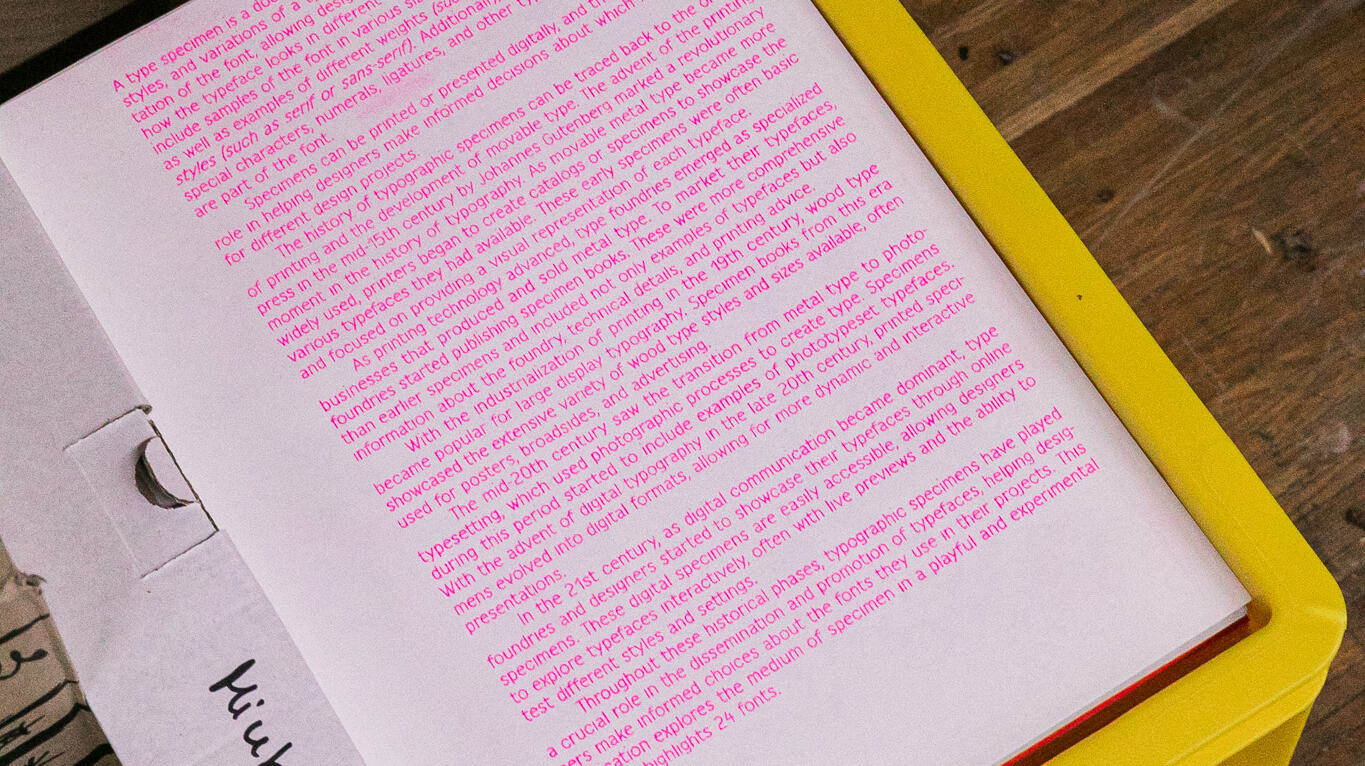 A type specimen is a doc
styles, and variations of a
tation of the font, allowing desig
how the typeface looks in different
include samples of the font in various si
as well as examples of different weights (suc
styles (such as serif or sans-serif). Additionally,
special characters, numerals, ligatures, and other ty
are part of the font.
Specimens can be printed or presented digitally, and the
role in helping designers make informed decisions about which
for different design projects.
The history of typographic specimens can be traced back to the
of printing and the development of movable type. The advent of the printing
press in the mid-15th century by Johannes Gutenberg marked a revolutionary
moment in the history of typography. As movable metal type became more
widely used, printers began to create catalogs or specimens to showcase the
various typefaces they had available. These early specimens were often basic
and focused on providing a visual representation of each typeface.
As printing technology advanced, type foundries emerged as specialized
businesses that produced and sold metal type. To market their typefaces,
foundries started publishing specimen books. These were more comprehensive
than earlier specimens and included not only examples of typefaces but also
information about the foundry, technical details, and printing advice.
With the industrialization of printing in the 19th century, wood type
became popular for large display typography. Specimen books from this era
showcased the extensive variety of wood type styles and sizes available, often
used for posters, broadsides, and advertising.
The mid-20th century saw the transition from metal type to photo-
typesetting, which used photographic processes to create type. Specimens
during this period started to include examples of phototypeset typefaces.
With the advent of digital typography in the late 20th century, printed speci-
mens evolved into digital formats, allowing for more dynamic and interactive
presentations.
In the 21st century, as digital communication became dominant, type
foundries and designers started to showcase their typefaces through online
specimens. These digital specimens are easily accessible, allowing designers
to explore typefaces interactively, often with live previews and the ability to
test different styles and settings.
Throughout these historical phases, typographic specimens have played
a crucial role in the dissemination and promotion of typefaces, helping desig-
ners make informed choices about the fonts they use in their projects. This
cation explores the medium of specimen in a playful and experimental
highlights 24 fonts.